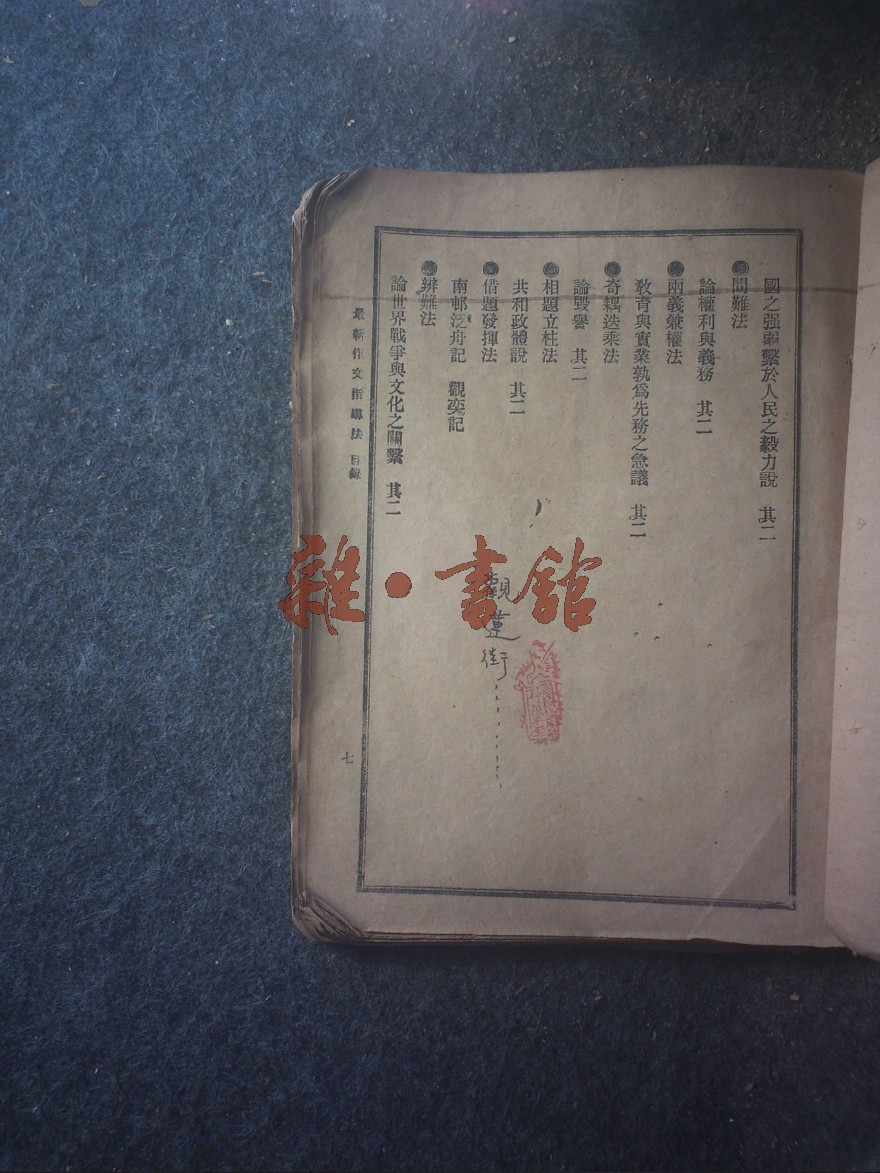 國之强弱繫於人民之毅力說 其二
問難法
論權利與義務 其二
兩義兼權法
敎育與實業孰爲先務之急議 其二
奇耦迭乘法
論毀譽 其二
相題立柱法
共和政體說 其二
借題發揮法
南邨泛舟記 觀奕記
辨難法
論世界戰爭與文化之關繫 其二
最新作文指導法 目錄
七
觀蓮街
雜·書館